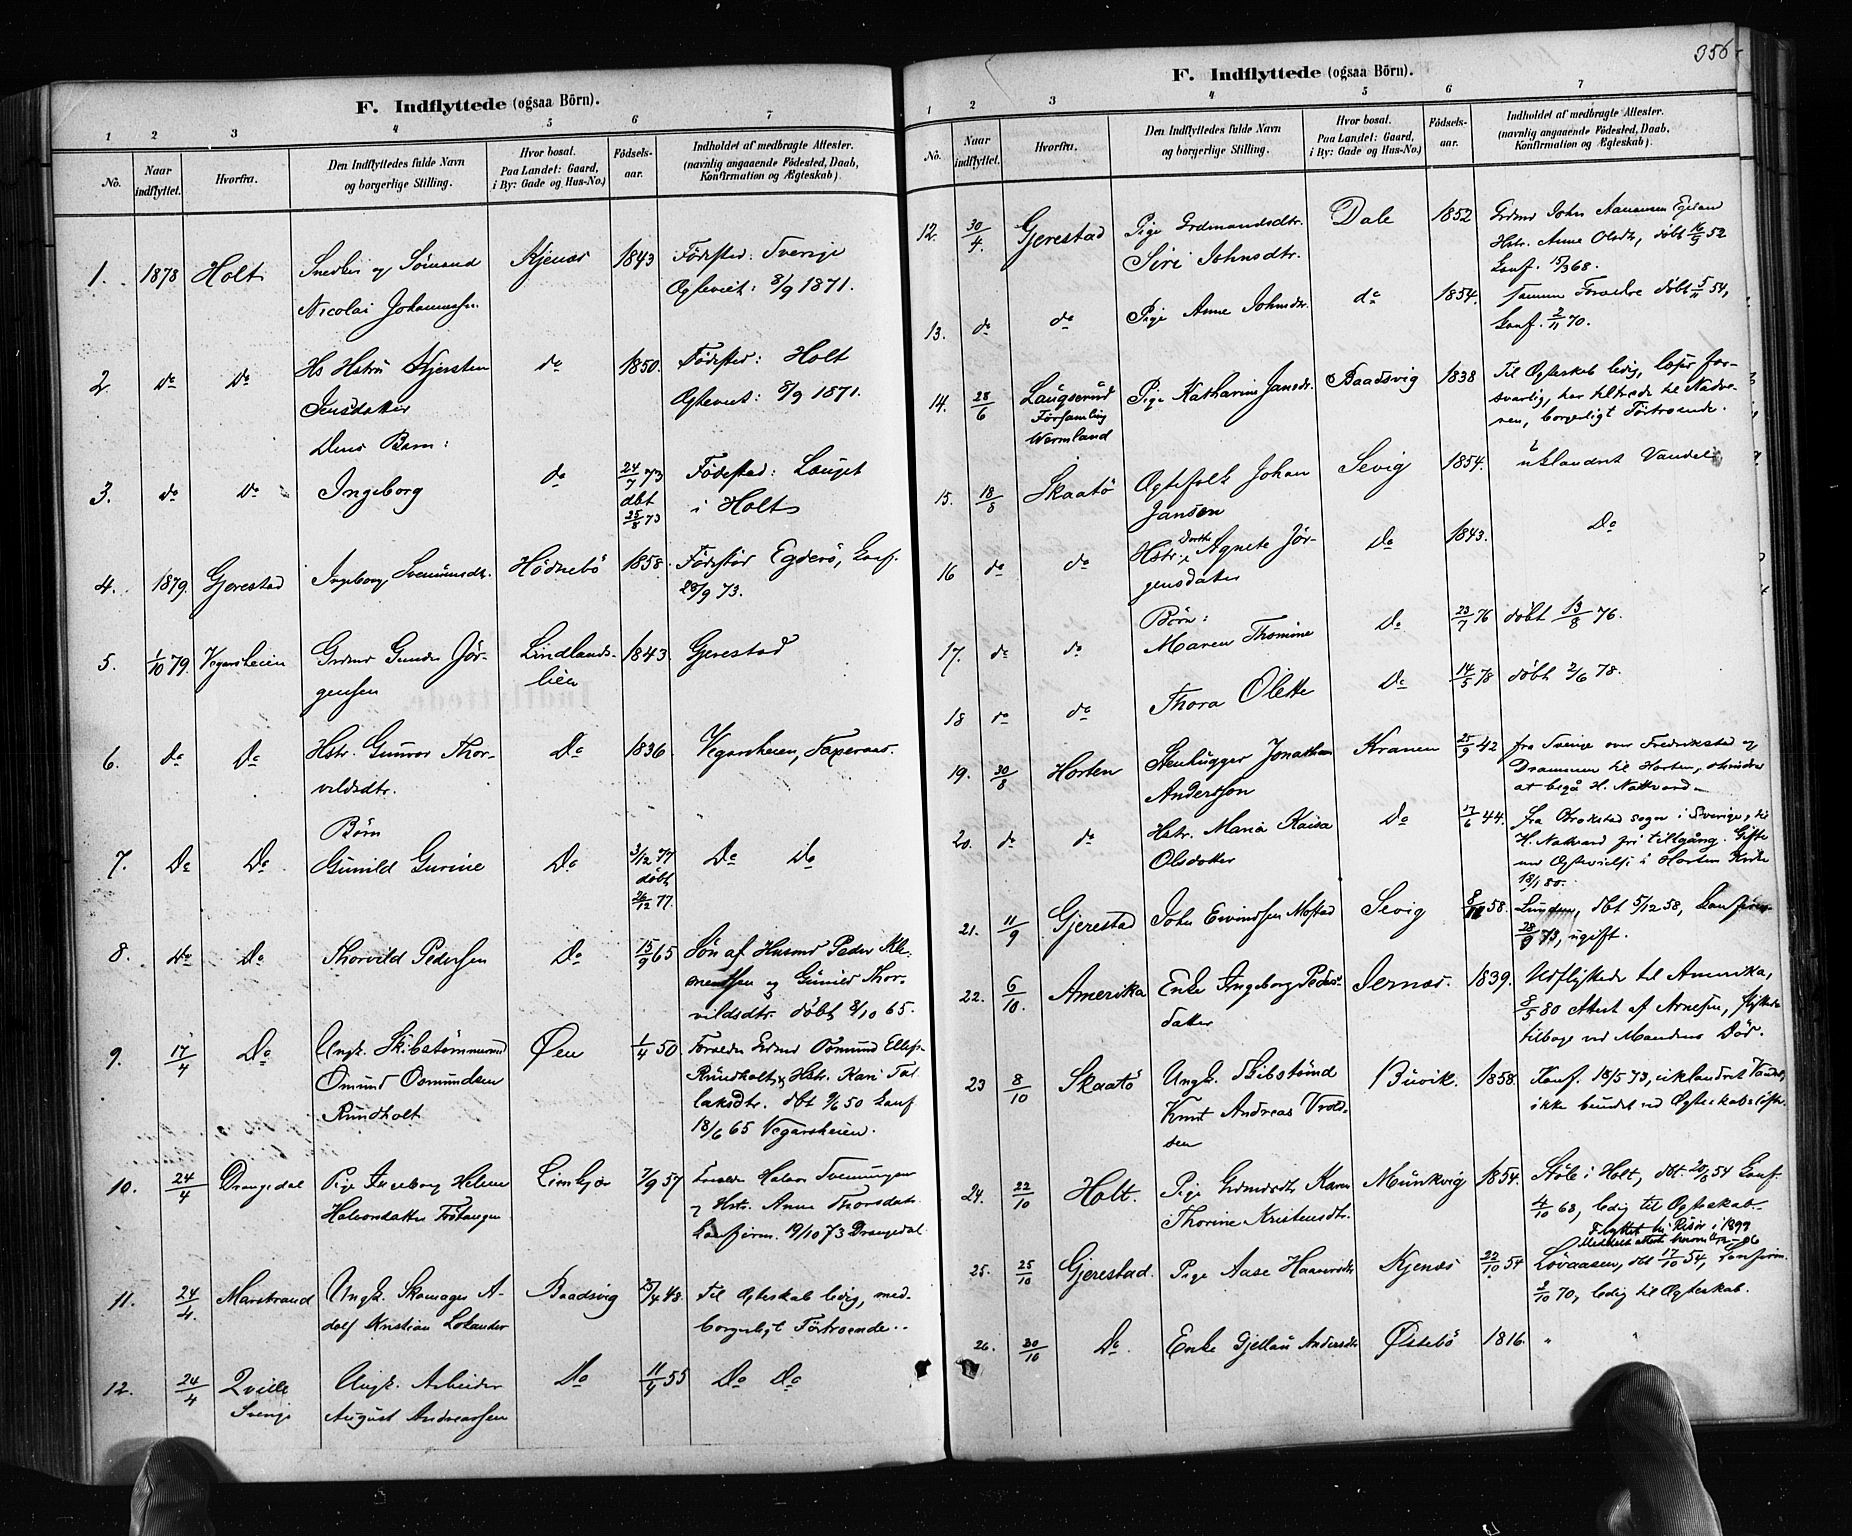 356
F. Indflyttede (ogsaa Börn).
1 2 3 4 5 6 7
No.
Naar indflyttet.
Hvorfra.
Den Indflyttedes fulde Navn
og borgerlige Stilling.
Hvor bosat.
Paa Landet: Gaard,
i By: Gade og Hus-No.)
Födsels-
aar.
Indholdet af medbragte Attester.
(navnlig angaaende Födested, Daab,
Konfirmation og Ægteskab).
1. 1878 Holt Snedker og Sömand Kjenas 1843 Födested: Sverige
Nicolai Johannesen Ægteviet: 8/9 1871.
2. do do Hs Hstru Kjersten do 1850. Födested: Holt
Jensdatter Ægteviet: 8/9 1871.
Deres Barn:
3. do do Ingeborg do 24/7 73 Födested: Lauget
döbt i Holt
25/8 73
4. 1879. Gjerestad Ingeborg Hödnebö 1858. Födested Egderö, Konf.
28/9 73.
5. 1/10 79. Vegarsheien Grdmd Gunder Jör- Lindlands- 1843 Gjerestad
gensen lien
6. do do Hstr. Gunvor Thor- Do 1836. Vegarsheien,
vildsdtr.
Börn
7. Do Do Gunild Gurine Do 3/12 77 Do Do
döbt
26/12 77.
8. Do Do Thorvild Pedersen Do 15/9 65 Sön af Husmd Peder Kle-
mentsen og Gunild Thor-
vildsdtr. döbt 8/10 65.
9. 17/4 Do Ungk. Skibstömmermd Öen 1/4 50 Foræld: Grdmd Osmund Ellefs.
Omund Osmundsen Rundholt, Hstr. Kari Tal
Rundholt laksdtr. dbt 9/6 50 Konf
18/6 65 Vegarsheien.
10. 24/4 Drangedal Pige Ingeborg Helene 7/9 57 Foræld Halvor
Halvorsdatter og Hstr. Anne Thorsdatr.
Konfirm. 19/10 73 Drangedal
11. 24/4. Marstrand Ungk. Skomager A- Baadsvig 48. Til Ægteskab ledig, med-
dolf Kristian borgerligt Förtroende..
12. 24/4 Qville Ungk. Arbeider Do 11/4 55 Do Do
Sverige August Andreassen
F. Indflyttede (ogsaa Börn).
1 2 3 4 5 6 7
No.
Naar
indflyttet.
Hvorfra.
Den Indflyttedes fulde Navn
og borgerlige Stilling.
Hvor bosat.
Paa Landet: Gaard,
i By: Gade og Hus-No.)
Födsels-
aar.
Indholdet af medbragte Attester.
(navnlig angaaende Födested, Daab,
Konfirmation og Ægteskab).
12. 30/4. Gjerestad Pige Grdmandsdtr. Dale 1852 Grdmd John Aanonsen Egeland
Siri Johnsdtr. Hstr. Anne Olsdtr, döbt 16/9 52
Konf. 15/3 68.
13. do do Pige Anne Johnsdtr. do 1854. Samme Forældre döbt 5/11 54,
Konf. 2/11 70.
14. 28/6 Långserud Pige Katharine Jansdr. Baadsvig 1838 Til Ægteskab ledig, læser for-
Församling svarlig, har tiltrede til Nadve-
Wermland ren, borgerligt Förtroende.
15. 18/8 Skaatö Ægtefolk Johan Sevig 1854. uklandret Vandel
Jansen
16 do do Hstr. Dorthe Agnete Jör- Do 1843. Do
gensdatter
Börn:
17. do do Maren Thomine Do 23/7 76 döbt 13/8 76.
18 do do Thora Olette Do 14/5 78 döbt 2/6 78.
19. 30/8 Horten Stenhugger Jonathan Kranen 25/9 42 fra Sverige over Fredrikstad og
Andersson Drammen til Horten,
at begå H. Nattvard
20. do do Hstr. Maria Kaisa Do 17/6 44. fra sogn i Sverige, til
Olsdotter H. Nattvard fri tillgång. Gifte
ved Ægtevielse i Horten Kirke
18/1 80.
21. 11/9 Gjerestad John Eivindsen Mostad Sevig 58. Lunden, dbt 5/12 58, Konfirm.
28/9 73, ugift.
22. 6/10. Amerika Enke Ingeborg Peders- Sernes. 1839. Udflyttede til Amerika,
datter 8/5 80 Attest af Arnesen, flyttede
tilbage ved Mandens Död.
23 8/10 Skaatö Ungk. Skibstömd Buvik. 1858. Konf. 18/5 73, uklandret Vandel,
Knut Andreas Vrold- ikke bundet ved Ægteskabslöfte.
sen
24. 22/10 Holt. Pige Grdmdsdtr Karen Munkvig 1854. Stöle i Holt, dbt. 20/8 54 Konf.
Thorine Kristensdtr. 4/10 68, ledig til Ægteskab.
Flyttet til Risör i 1899
Meddelt attest
25. 25/10 Gjerestad. Pige Aase Haavorsdtr Kjenes 22/10 54 Lövaasen, dbt 17/10 54, Konfirm.
2/10 70, ledig til Ægteskab.
26. 30/10 Do. Enke Andersdtr Östebö 1816. " "